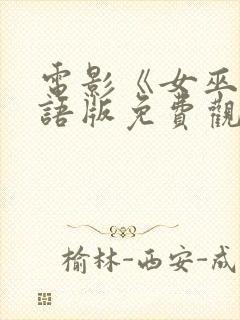 電影《女巫
語版免費觀
榆林-西安-成